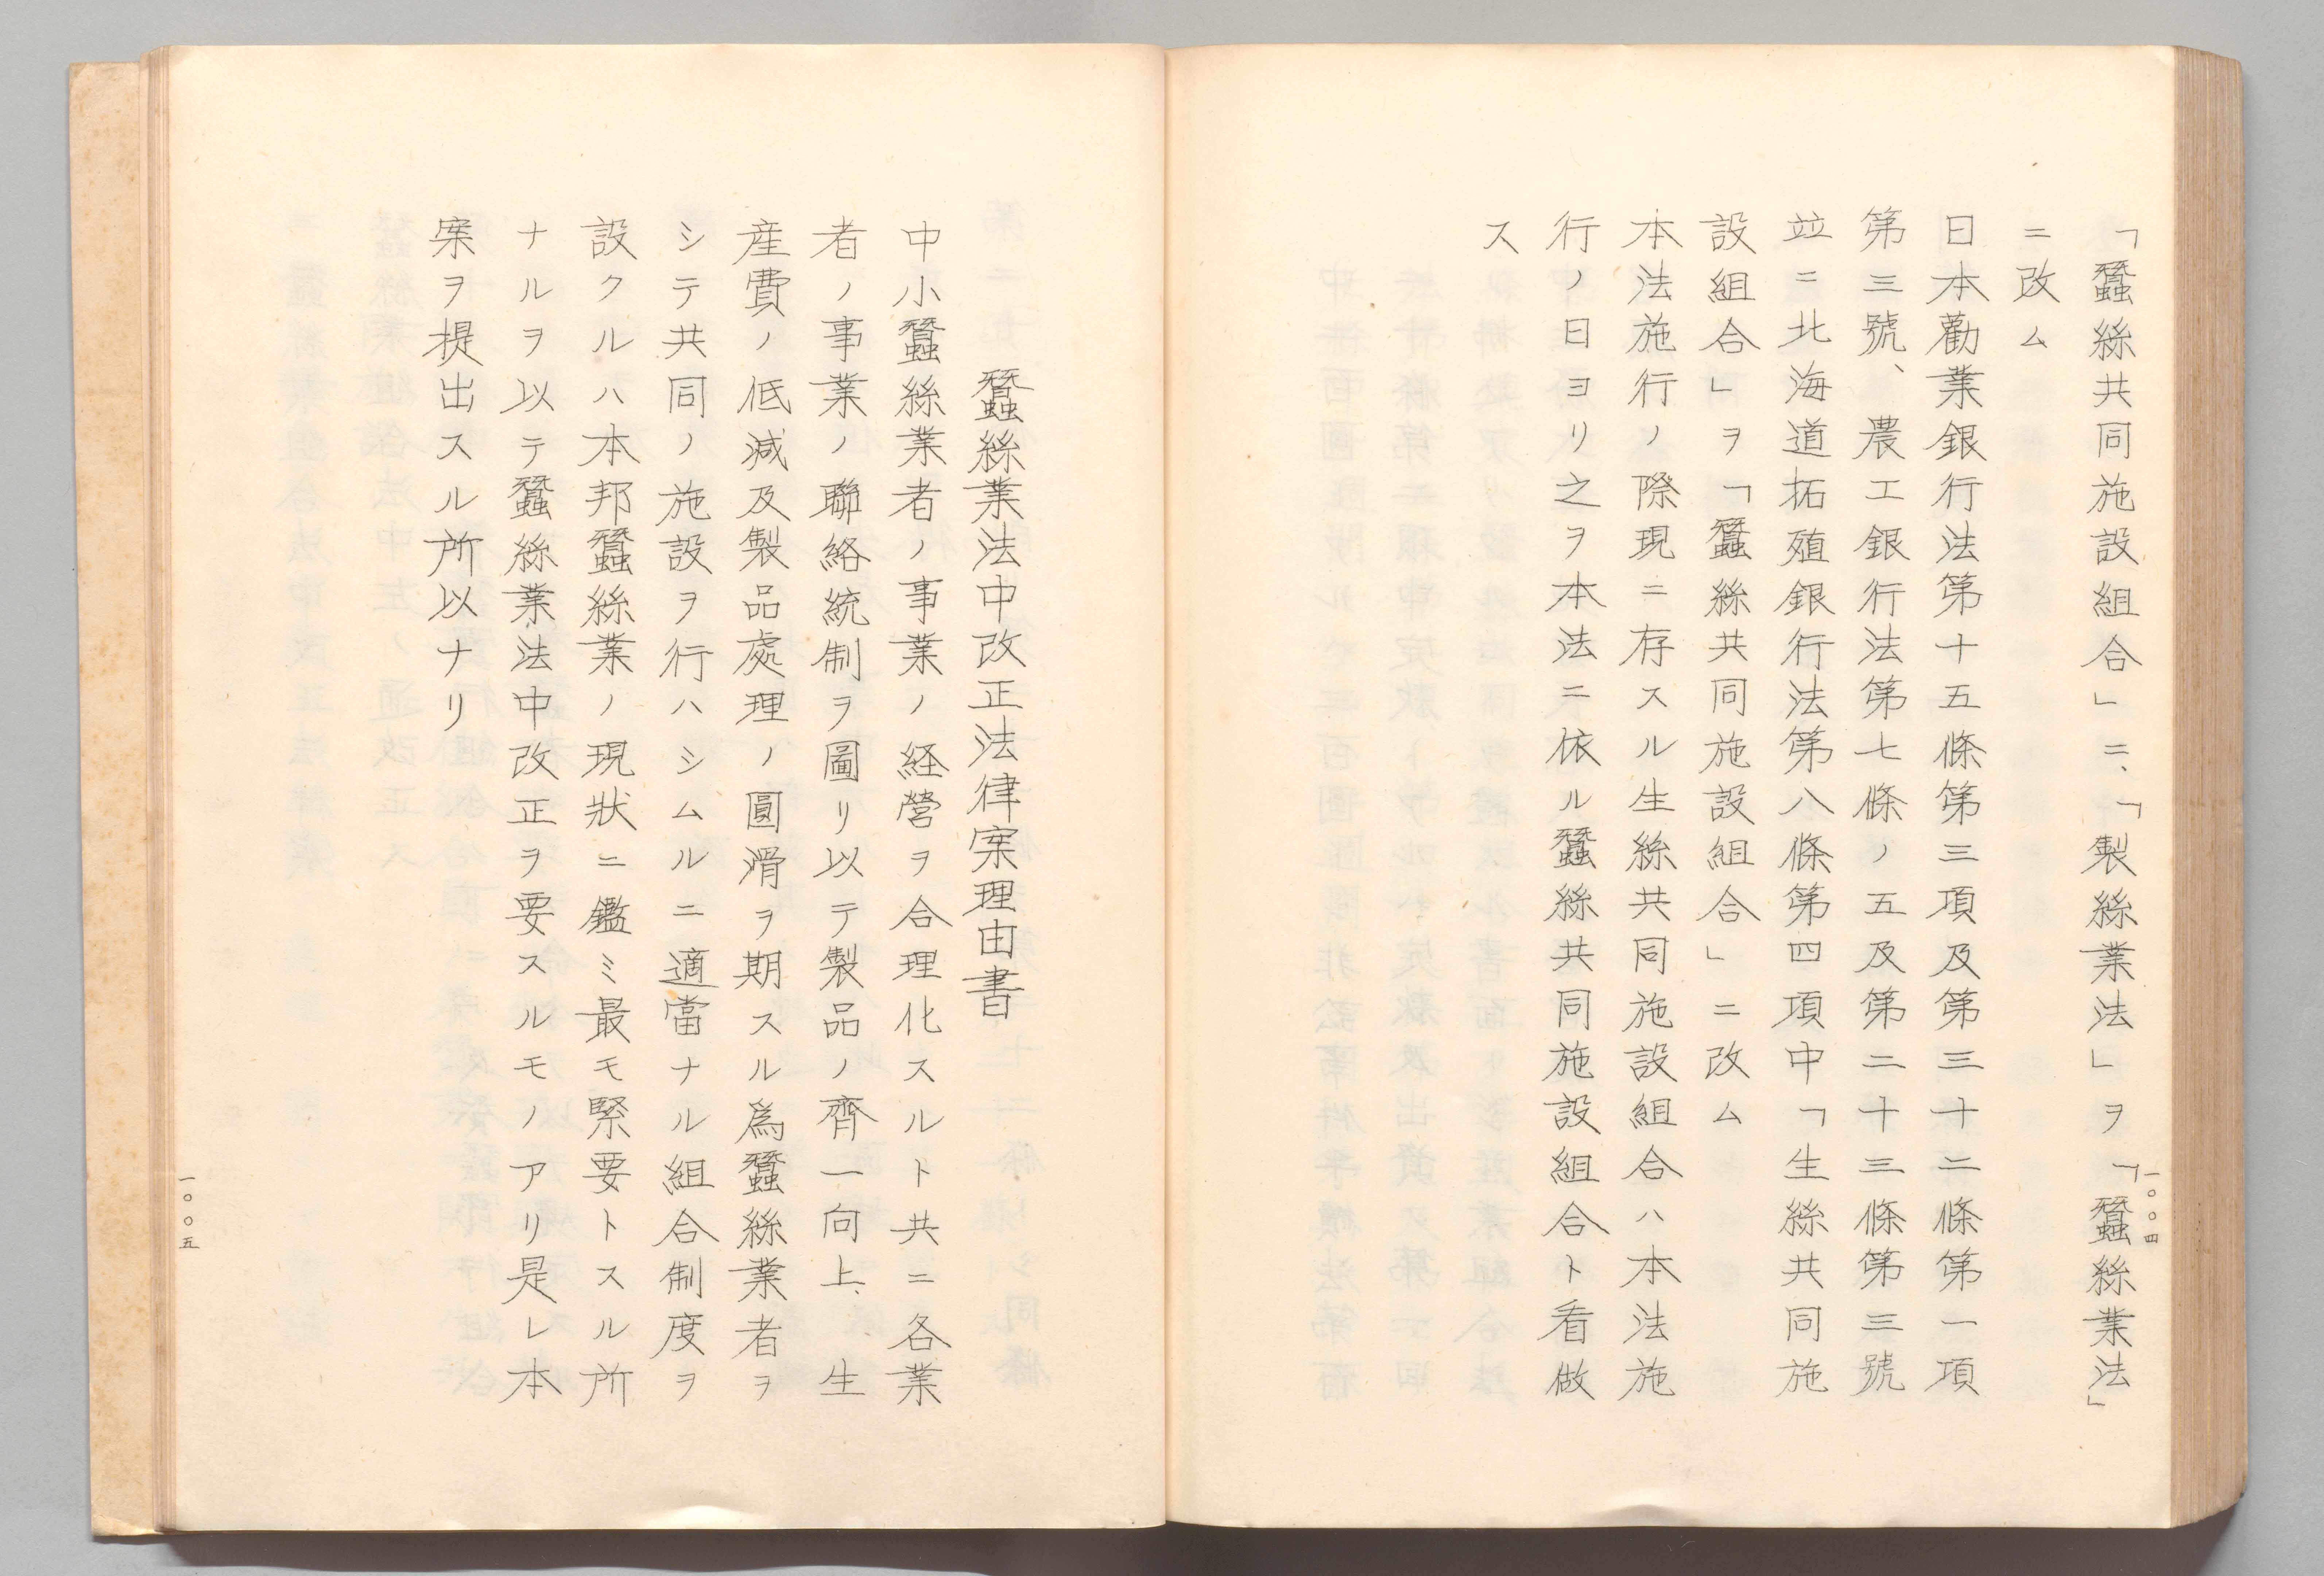 「蠶絲共同施設組合」ニ、「製絲業法」ヲ「蠶絲業法」
ニ改ム
日本勸業銀行法第十五條第三項及第三十二條第一項
第三號、農工銀行法第七條ノ五及第二十三條第三號
竝ニ北海道拓殖銀行法第八條第四項中「生絲共同施
設組合」ヲ「蠶絲共同施設組合」ニ改ム
本法施行ノ際現ニ存スル生絲共同施設組合ハ本法施
行ノ日ヨリ之ヲ本法ニ依ル蠶絲共同施設組合ト看做
ス
一〇〇四
蠶絲業法中改正法律案理由書
中小蠶絲業者ノ事業ノ経營ヲ合理化スルト共ニ各業
者ノ事業ノ聯絡統制ヲ圖リ以テ製品ノ齊一向上、生
産費ノ低減及製品處理ノ圓滑ヲ期スル爲蠶絲業者ヲ
シテ共同ノ施設ヲ行ハシムルニ適當ナル組合制度ヲ
設クルハ本邦蠶絲業ノ現狀ニ鑑ミ最モ緊要トスル所
ナルヲ以テ蠶絲業法中改正ヲ要スルモノアリ是レ本
案ヲ提出スル所以ナリ
一〇〇五